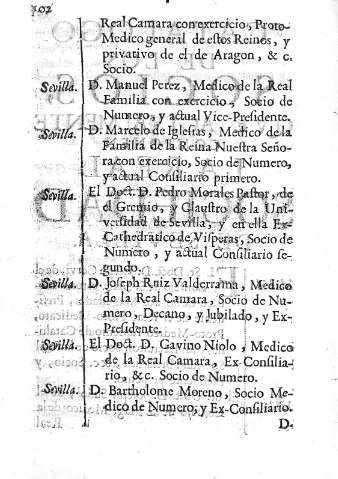 102
Real Camara con exercicio, Proto-
Medico general de estos Reinos, y
privativo de el de Aragon, & c.
Socio.
Sevilla. D. Manuel Perez, Medico de la Real
Familia con exercicio, Socio de
Numero, y actual Vice-Presidente.
Sevilla. D. Marcelo de Iglesias, Medico de la
Familia de la Reina Nuestra Seño-
ra con exercicio, Socio de Numero,
y actual Consiliario primero.
Sevilla. El Doct. D. Pedro Morales Pastor, de
el Gremio, y Claustro de la Uni-
versidad de Sevilla, y en ella Ex-
Cathedratico de Visperas, Socio de
Numero, y actual Consiliario se-
gundo.
Sevilla. D. Joseph Ruiz Valderrama, Medico
de la Real Camara, Socio de Nu-
mero, Decano, y Jubilado, y Ex-
Presidente.
Sevilla. El Doct. D. Gavino Niolo, Medico
de la Real Camara, Ex-Consilia-
rio, & c. Socio de Numero.
Sevilla. D. Bartholome Moreno, Socio Me-
dico de Numero, y Ex-Consiliario.
D.